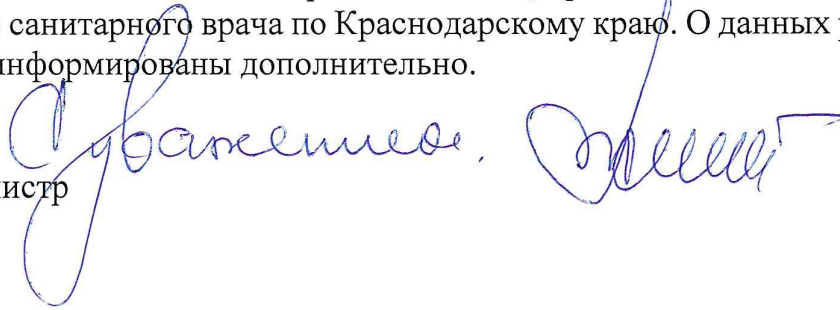 санитарного врача по Краснодарскому краю. О данных
информированы дополнительно.
С уважением.
нистр